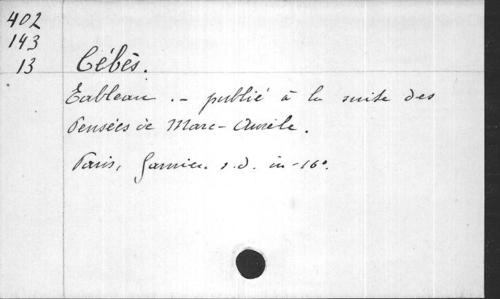 402
143
13
Cébès.
Tableau. - publié à la suite des
Pensées de Marc-Aurèle.
Paris, Garnier. s.d. in-16°.